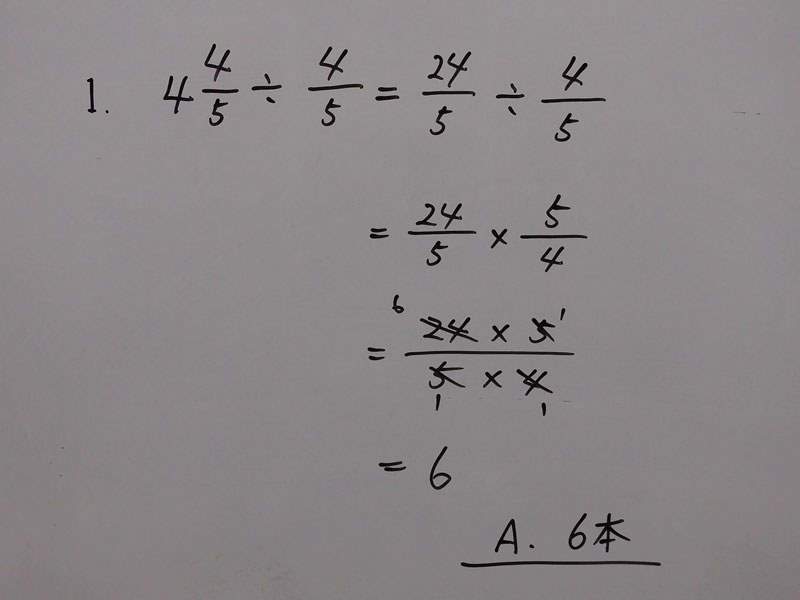 1. 4 4/5 ÷ 4/5 = 24/5 ÷ 4/5
= 24/5 × 5/4
= 6 24 × 5 1 / 5 1 × 4 1
= 6
A. 6本